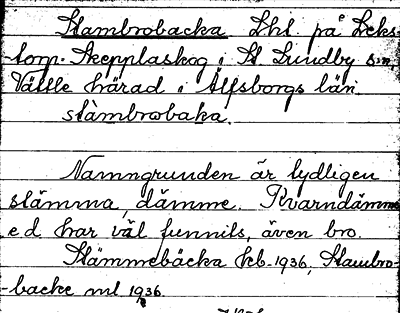 Stambrobacka Lhl. på Leks-
torp. Skepplaskog i St Lundby sn.
Vättle härad i Älfsborgs län
stàmbrobaka.
Namngrunden är tydligen
stämma, dämme. Kvarndämme
e d har väl funnits, även bro.
Stämmebäcka kb-1936, Stambro-
-backe ml 1936.